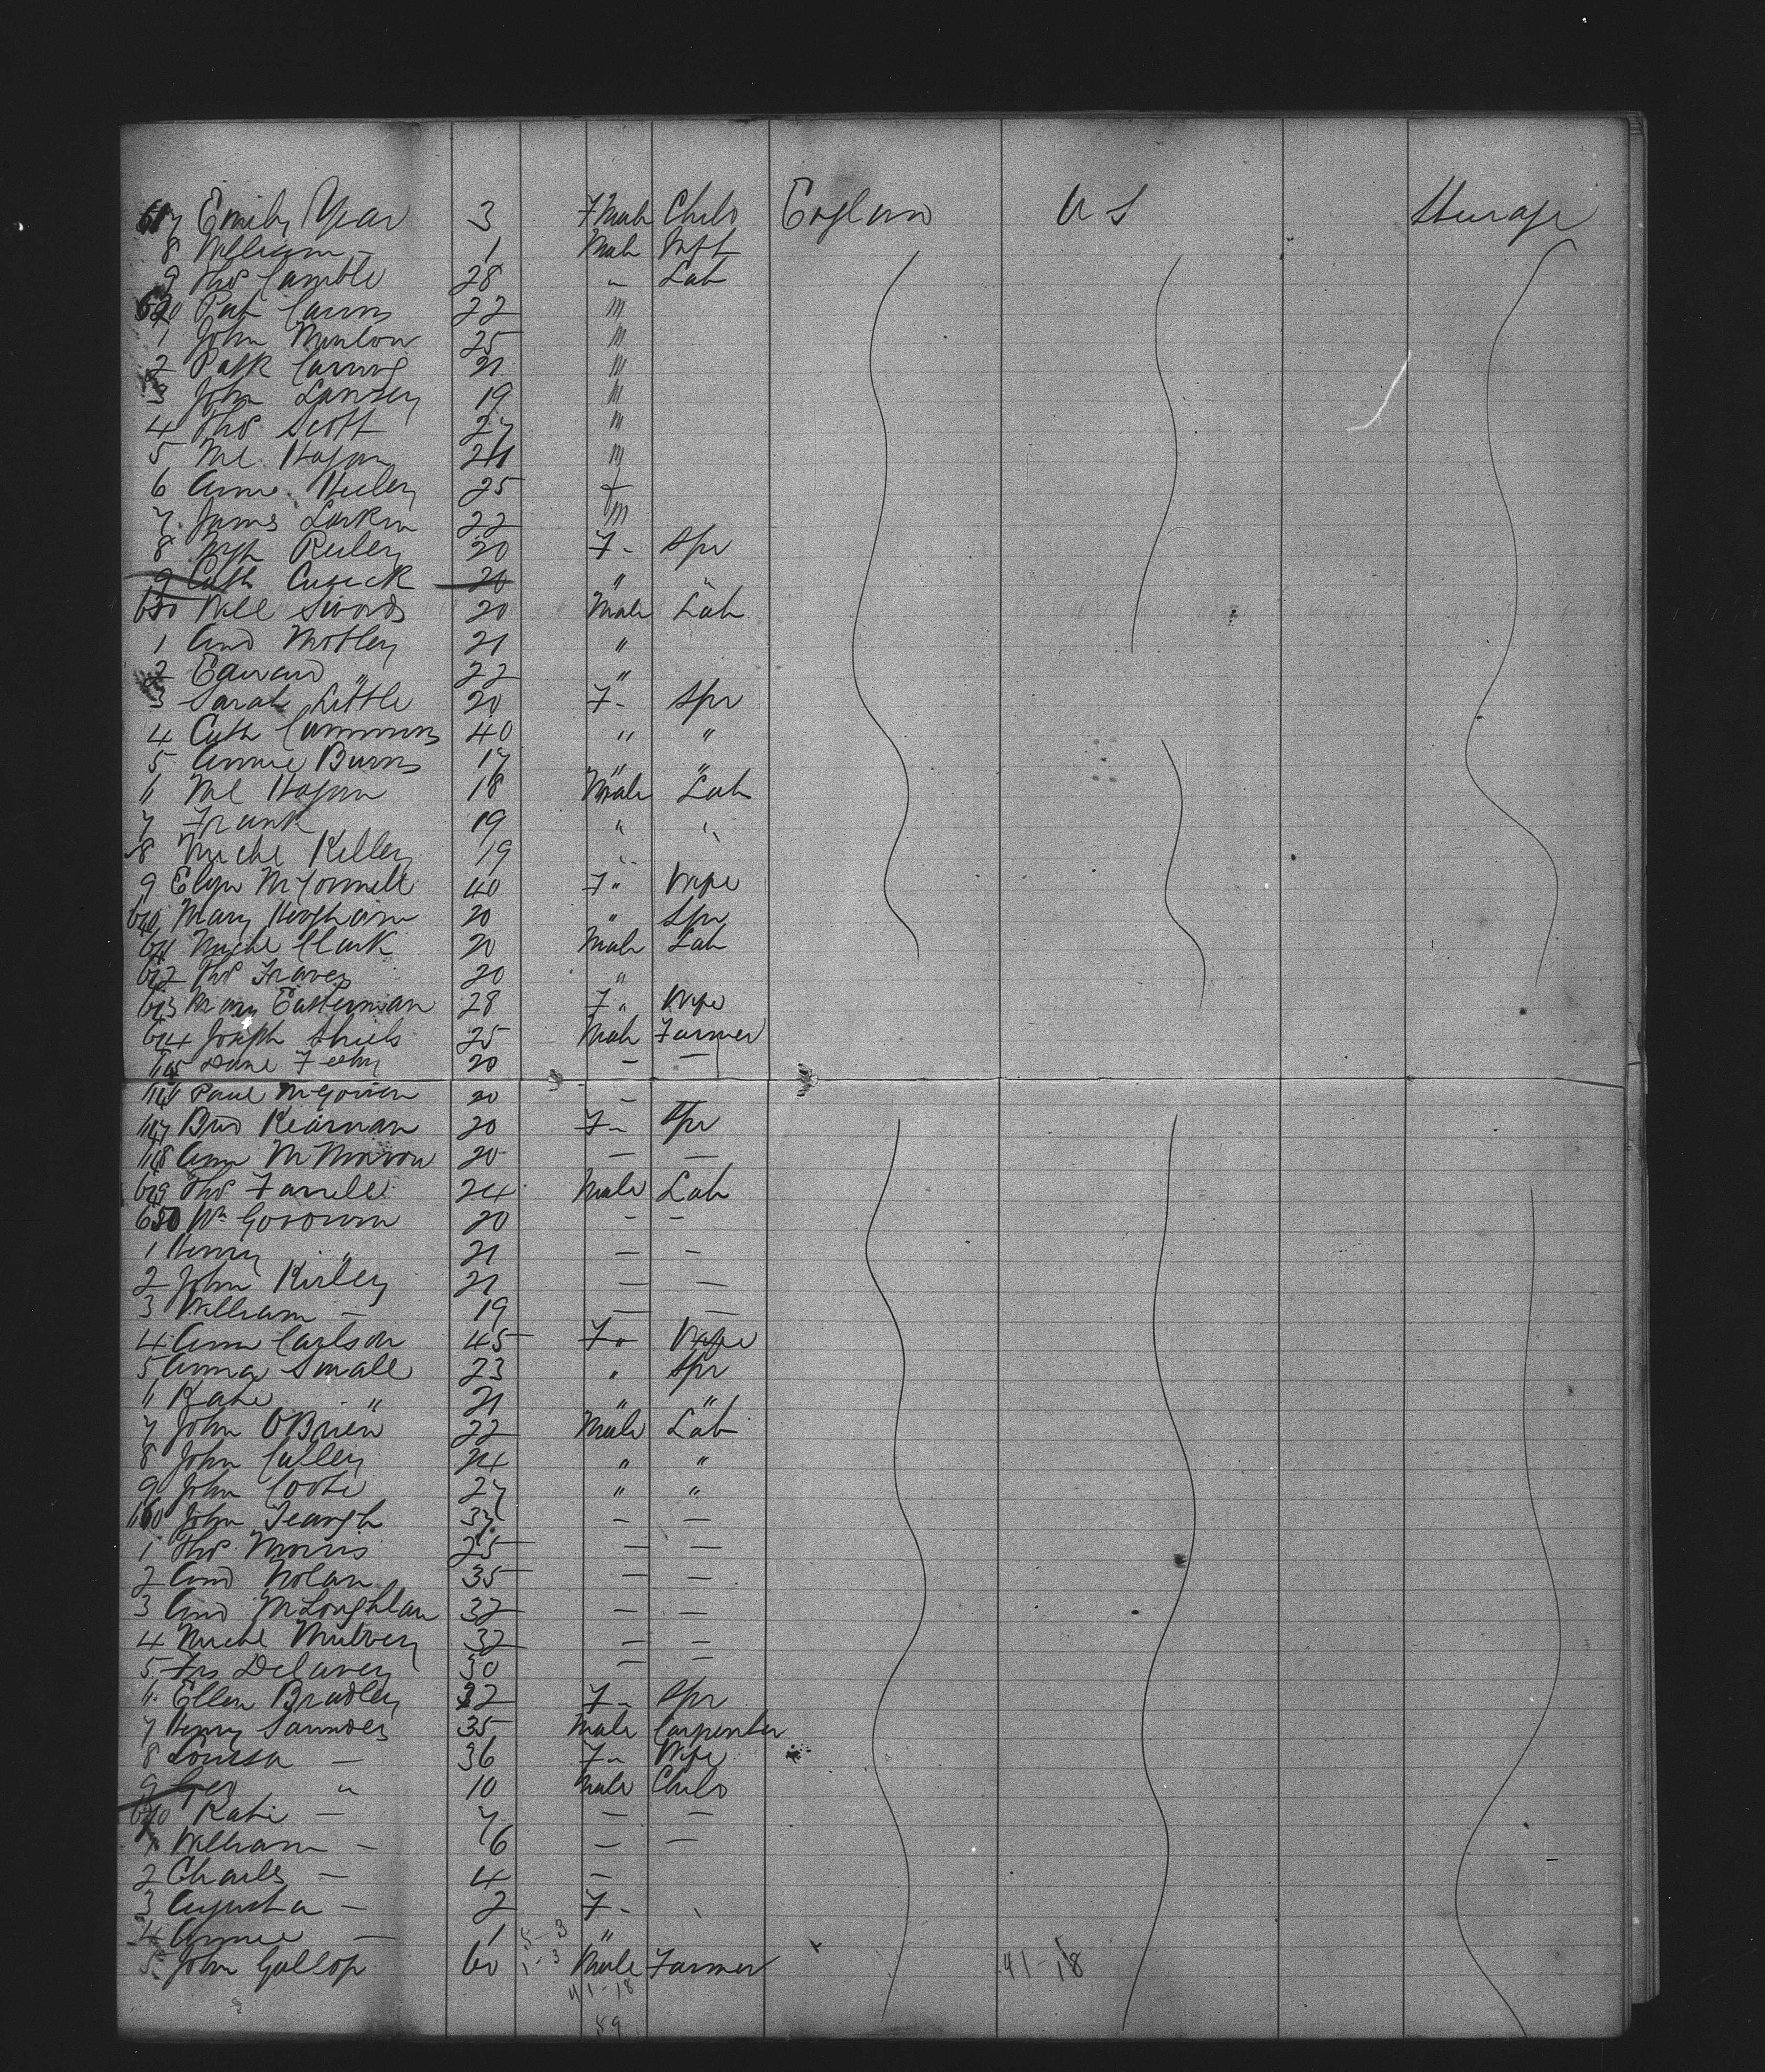 617 Emily Year 3 Fmale Child England U S Steerage
8 William - 1 Male Inft
9 Thos Camble 28 " Lab
620 Pat Cairns 22 "
1 John 25 "
2 Patk 21 "
3 John 19 "
4 Thos Scott 27 "
5 Ml Hagan 24 "
6 Anne 25 f
7 James Larkin 22 m
8 Reiley 20 F- Spr
9 Cath Cusick 20 " "
630 Will Swords 20 Male Lab
1 And Motley 21 "
2 Edward " 22 "
3 Sarah Little 20 F- Spr
4 Cath Cummins 40 " "
5 Annie Burns 17 " "
6 Ml Hagan 18 Male Lab
7 Frank 19 " "
8 Michl Kelley 19 "
9 McConnell 40 F " Wife
640 Mary 20 " Spr
641 Michl Clark 20 Male Lab
642 Thos 20 "
643 Mary Easterman 28 F " Wife
644 Joseph Shiels 25 Male Farmer
645 20 - -
646 McGovern 20 -
647 Brid Kearnan 20 F- Spr
648 Ann 20 - -
649 Thos Farrell 24 Male Lab
650 Wm 20 - -
1 Henry " 21 - -
2 John 21 - -
3 William - 19 - -
4 Ann Carlson 45 F " Wife
5 Anna Small 23 " Spr
6 Kate " 21 " "
7 John OBrien 22 Male Lab
8 John Culley 24 " "
9 John Coote 27 " "
660 John 37 - -
1 Thos Morris 25 - -
2 And Nolan 35 - -
3 And McLoughlan 32 - -
4 Michl Mulvey 32 - -
5 Frs Delaney 30 - -
6 Ellen Bradley 32 F- Spr
7 Henry Saunders 35 Male Carpenter
8 Louisa - 36 F- Wife
9 Geo " 10 Male Child
670 Katie - 7 - -
1 William - 6 - -
2 Charles - 4 -
3 Augusta - 2 F-
4 Annie - 1 5-3 "
5 John Gallop 60 1-3 Male Farmer 41-18
41-18
59